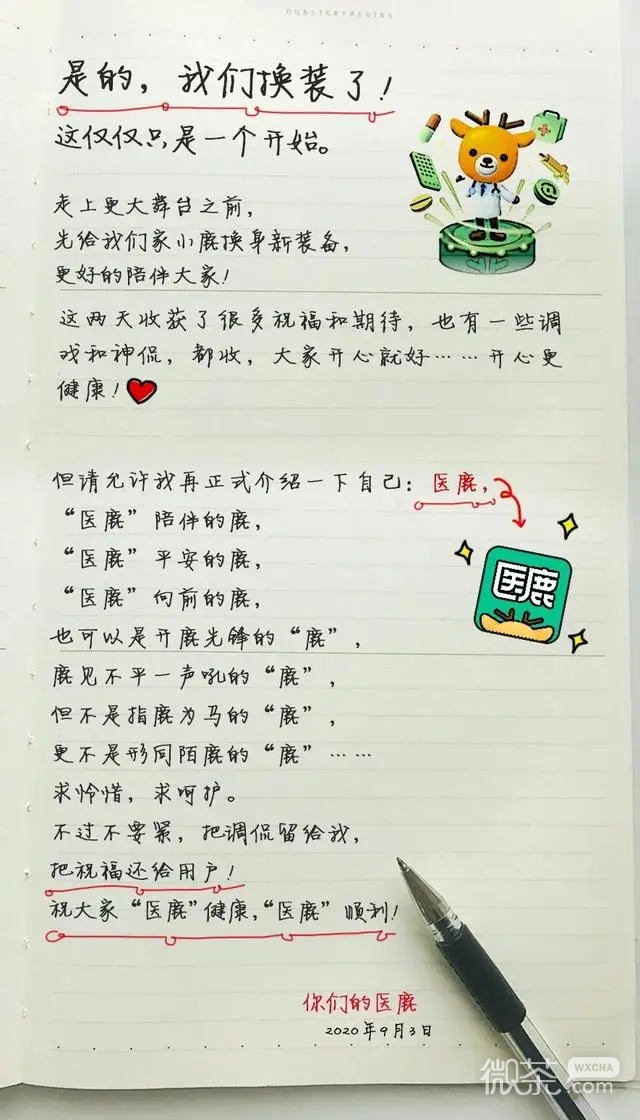 OURSTORYBEGINS
是的，我们换装了！
这仅仅只是一个开始。
走上更大舞台之前，
先给我们家小鹿换身新装备，
更好的陪伴大家！
这两天收获了很多祝福和期待，也有一些调
戏和神侃，都收，大家开心就好……开心更
健康！
但请允许我再正式介绍一下自己：医鹿，
“医鹿”陪伴的鹿，
“医鹿”平安的鹿，
“医鹿”向前的鹿，
医鹿
也可以是开鹿先锋的“鹿”，
鹿见不平一声吼的“鹿”，
但不是指鹿为马的“鹿”，
更不是形同陌鹿的“鹿”……
求怜惜，求呵护。
不过不要紧，把调侃留给我，
把祝福还给用户！
祝大家“医鹿”健康，“医鹿”顺利！
你们的医鹿
2020年9月3日
微茶 WXCHA
.com